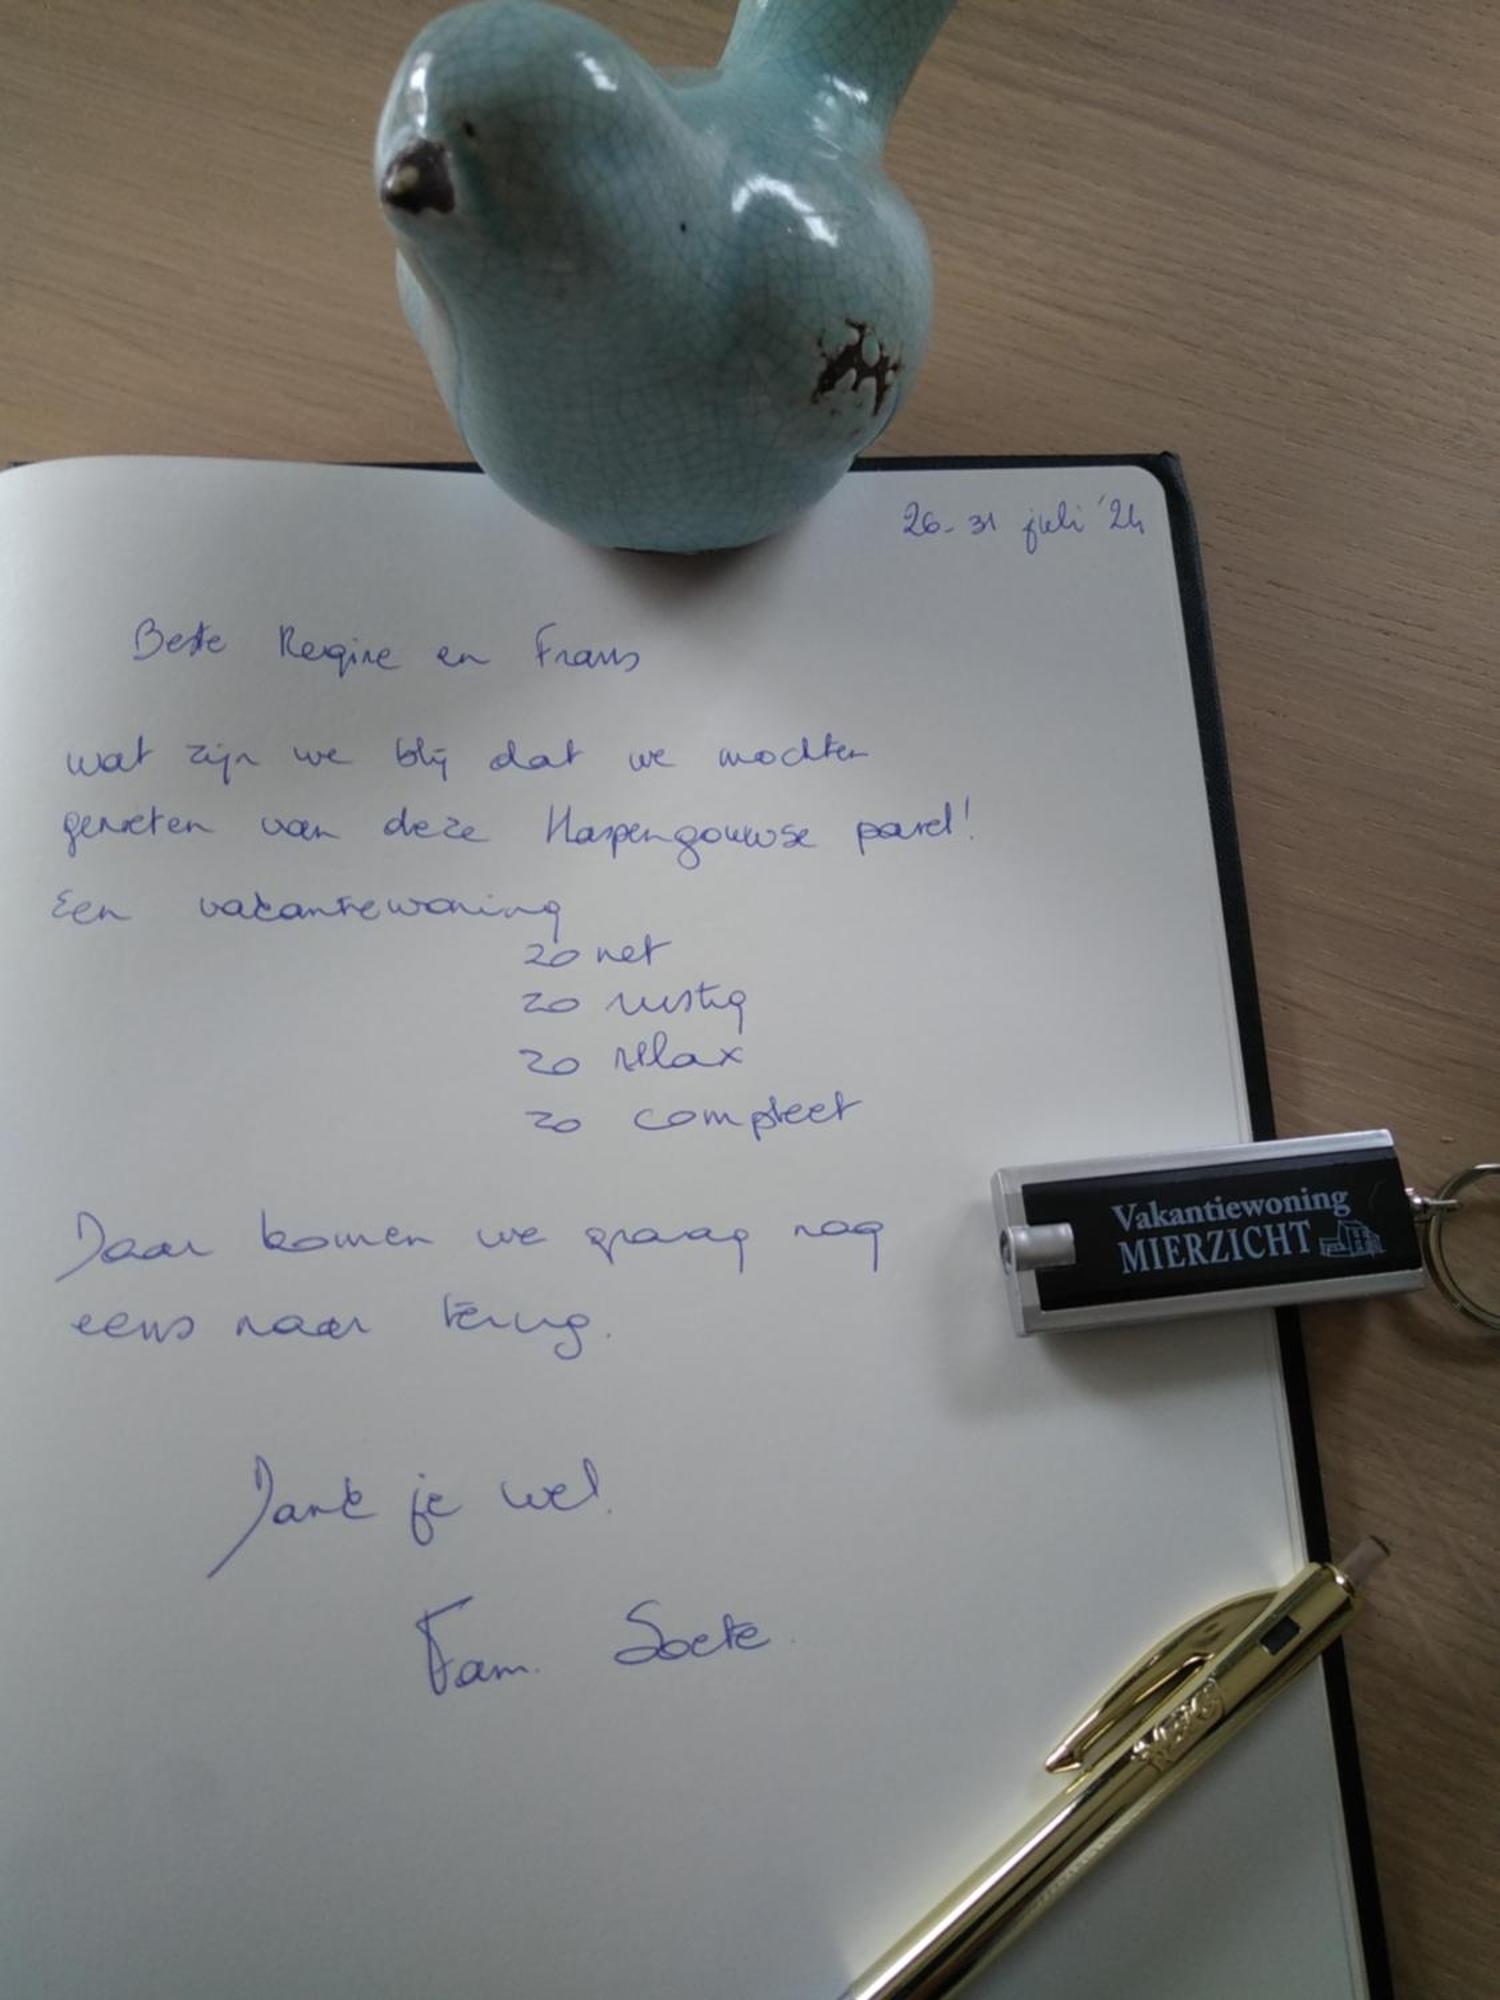 26-31 juli '24
Beste Regine en Frans
wat zijn we blij dat we mochten
genieten van deze Haspengouwse parel!
Een vakantiewoning
zo net
zo rustig
zo relax
zo compleet
Vakantiewoning
MIERZICHT
Daar komen we graag nog
eens naar terug.
Dank je wel.
Fam. Soete